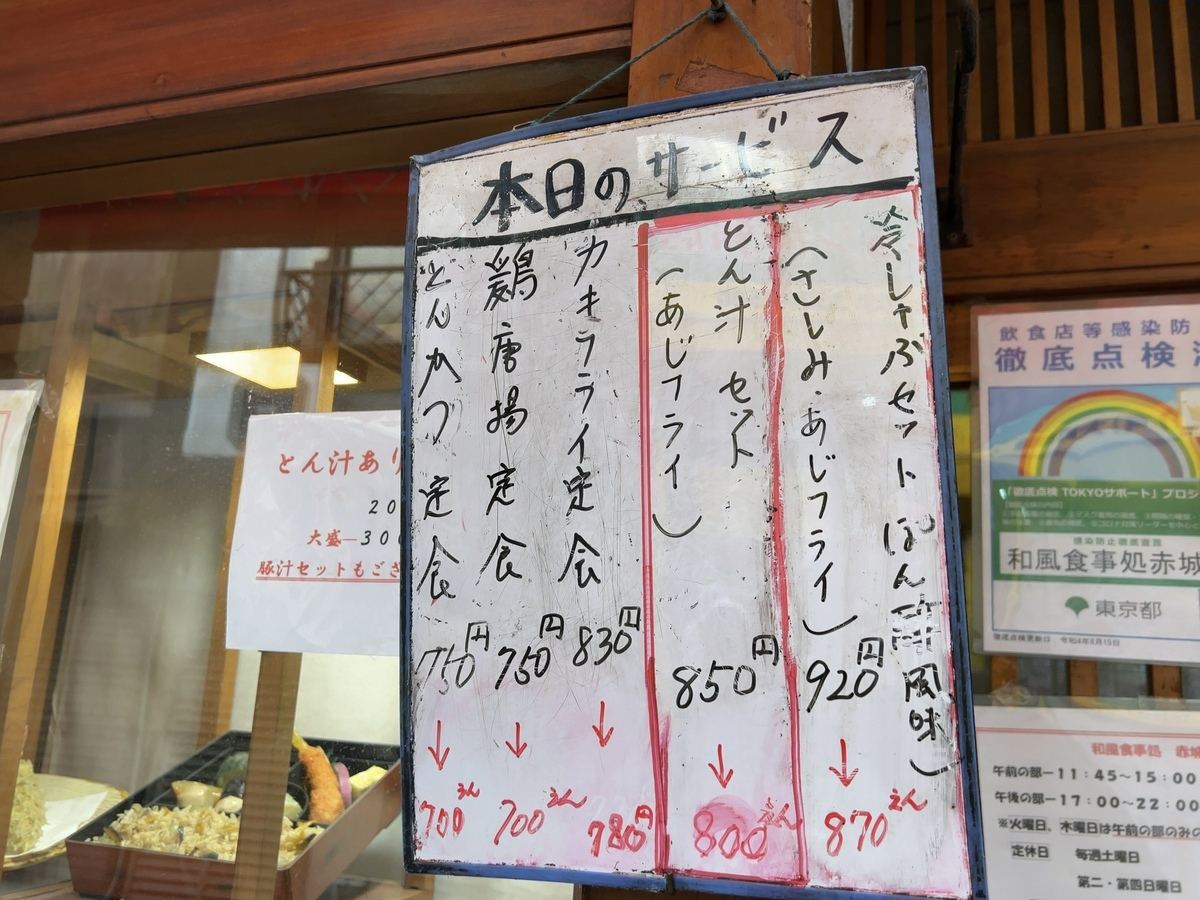 本日のサービス
冷しゃぶセット(ぽん酢風味)
(さしみ・あじフライ)
920円
↓
870えん
とん汁セット
(あじフライ)
850円
↓
800えん
カキフライ定食
830円
↓
780円
鶏唐揚定食
750円
↓
700えん
とんかつ定食
750円
↓
700えん
とん汁あり
20
大盛—300
豚汁セットもござ
飲食店等感染防
徹底点検
「徹底点検 TOKYOサポート」プロジ
感染防止徹底宣言
和風食事処赤城
東京都
徹底点検更新日 令和4年8月15日
和風食事処 赤城
午前の部—11:45～15:00
午後の部—17:00～22:00
※火曜日、木曜日は午前の部のみの
定休日 毎週土曜日
第二・第四日曜日